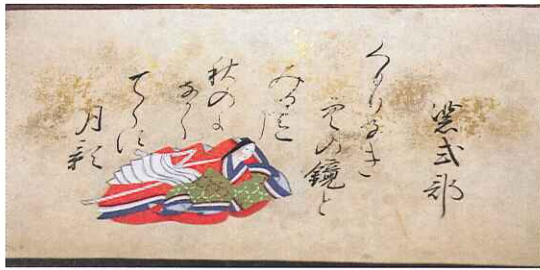 紫式部
くもりなき
空の鏡と
みる迄に
秋のよ
なかく
てらす
月影